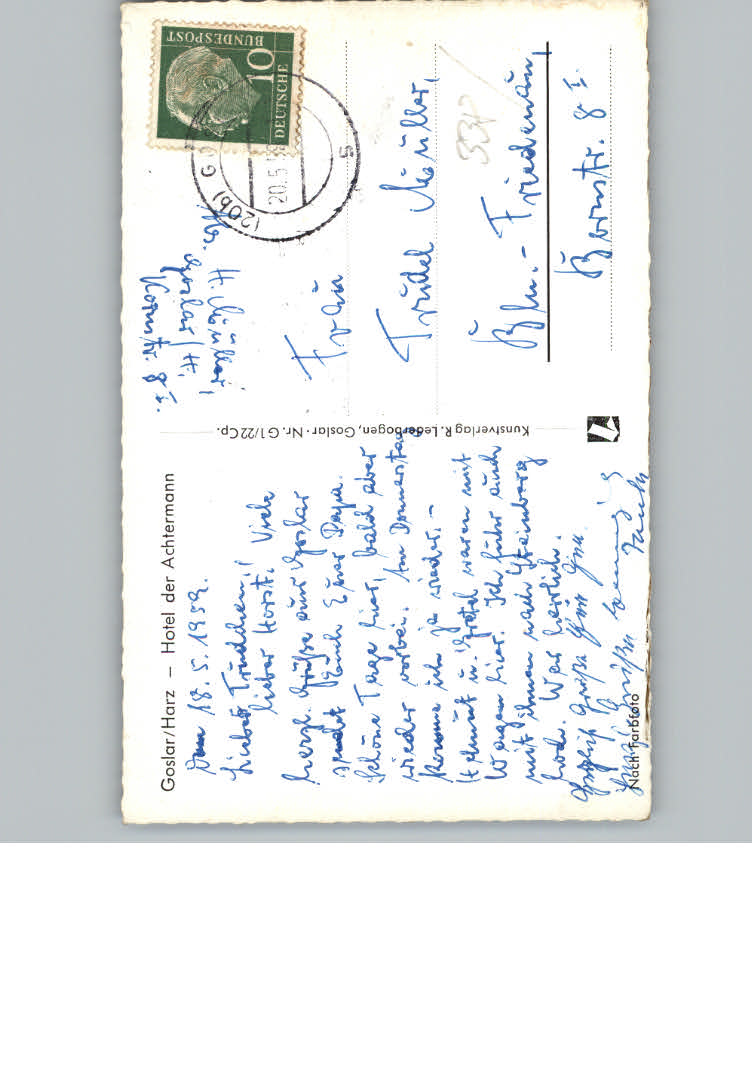 Goslar/Harz – Hotel der Achtermann
Den 18.5.1959.
Liebes Trudchen,
lieber Horst! Viele
herzl. Grüße aus Goslar
sendet Euch Euer Papa.
Schöne Tage hier, bald aber
wieder vorbei. Am Donnerstag
komme ich ja wieder.-
Helmut u. Gretel waren mit
Wagen hier. Ich fuhr auch
mit ihnen nach Steinberg
hoch. War herrlich.
Grüße
Grüße
Nach Farbfoto
Kunstverlag R. Lederbogen, Goslar · Nr. G1/22Cp.
H. Müller,
Goslar/H.
Kornstr. 8 I.
DEUTSCHE
BUNDESPOST
10
(20b) GO
20.5.59
s
Frau
Trudel Müller,
Bln.-Friedenau,
Bornstr. 8 I.